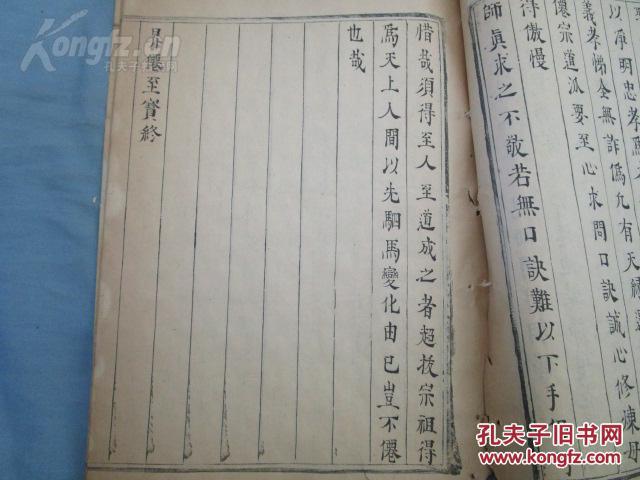 以序明忠孝
義孝悌全無詐偽允有天
僊宗道派要至心求問口訣誠心修煉毋
得傲慢
師真求之不敬若無口訣難以下手
惜哉須得至人至道成之者超拔宗祖得
為天上人間以先駟馬變化由已豈不僊
也哉
昇僊至寶終
Kongfz.com
孔夫子旧书网
孔夫子旧书网
Kongfz.com